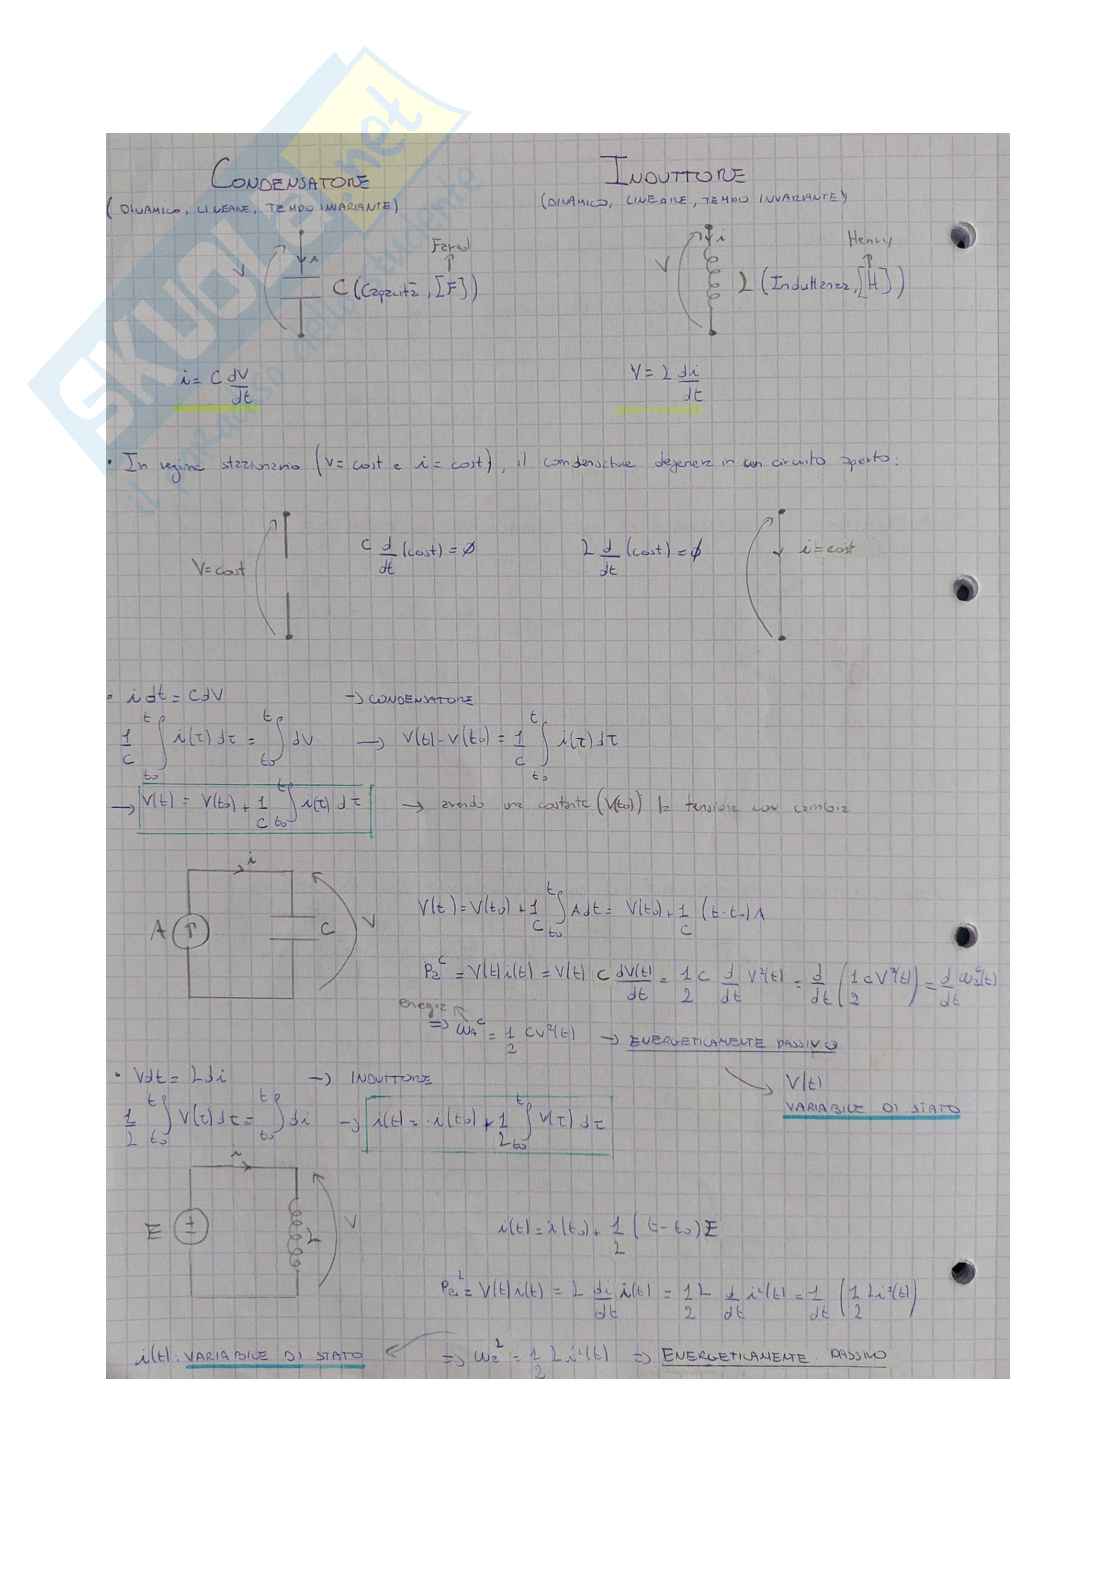 CONDENSATORE
(DINAMICO, LINEARE, TEMPO INVARIANTE)
INDUTTORE
(DINAMICO, LINEARE, TEMPO INVARIANTE)
V
i
Farad
C (Capacità, [F])
V
i
Henry
L (Induttanza, [H])
i = C dV/dt
V = L di/dt
• In regime stazionario (V = cost e i = cost), il condensatore degenera in un circuito aperto:
V = cost
C d/dt (cost) = ∅
L d/dt (cost) = ∅
i = cost
• i dt = C dV → CONDENSATORE
1/C ∫t0^t i(τ) dτ = ∫t0^t dV → V(t) - V(t0) = 1/C ∫t0^t i(τ) dτ
→ V(t) = V(t0) + 1/C ∫t0^t i(τ) dτ → avendo una costante (V(t0)) la tensione non cambia
i
A
C
V
V(t) = V(t0) + 1/C ∫t0^t A dt = V(t0) + 1/C (t - t0) A
Pa^C = V(t) i(t) = V(t) C dV(t)/dt = 1/2 C d/dt V²(t) = d/dt (1/2 C V²(t)) = d/dt wa^C(t)
energia
⇒ wa^C = 1/2 C V²(t) → ENERGETICAMENTE PASSIVO
V(t)
VARIABILE DI STATO
• V dt = L di → INDUTTORE
1/L ∫t0^t V(τ) dτ = ∫t0^t di → i(t) = i(t0) + 1/L ∫t0^t V(τ) dτ
i
E
L
V
i(t) = i(t0) + 1/L (t - t0) E
Pa^L = V(t) i(t) = L di/dt i(t) = 1/2 L d/dt i²(t) = 1/dt (1/2 L i²(t))
i(t): VARIABILE DI STATO
⇒ wa^L = 1/2 L i²(t) ⇒ ENERGETICAMENTE PASSIVO
SKUOLA.net
il paradiso dello studente